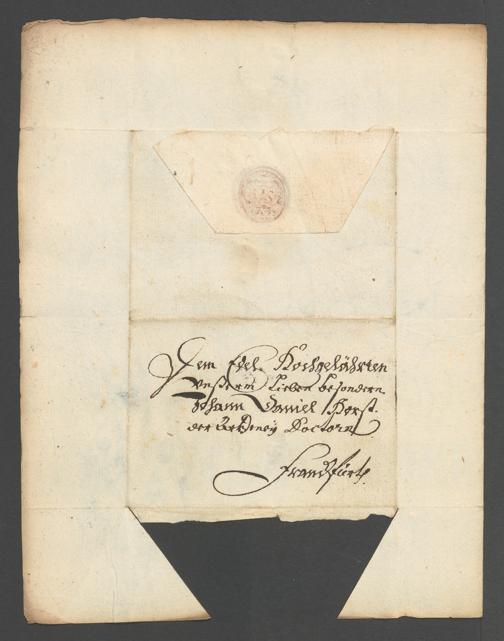 Dem Edel. Hochgelährten
unßerm Lieben besondern
Johann Daniel Horst.
der Artzeney Doctorn
Franckfurt